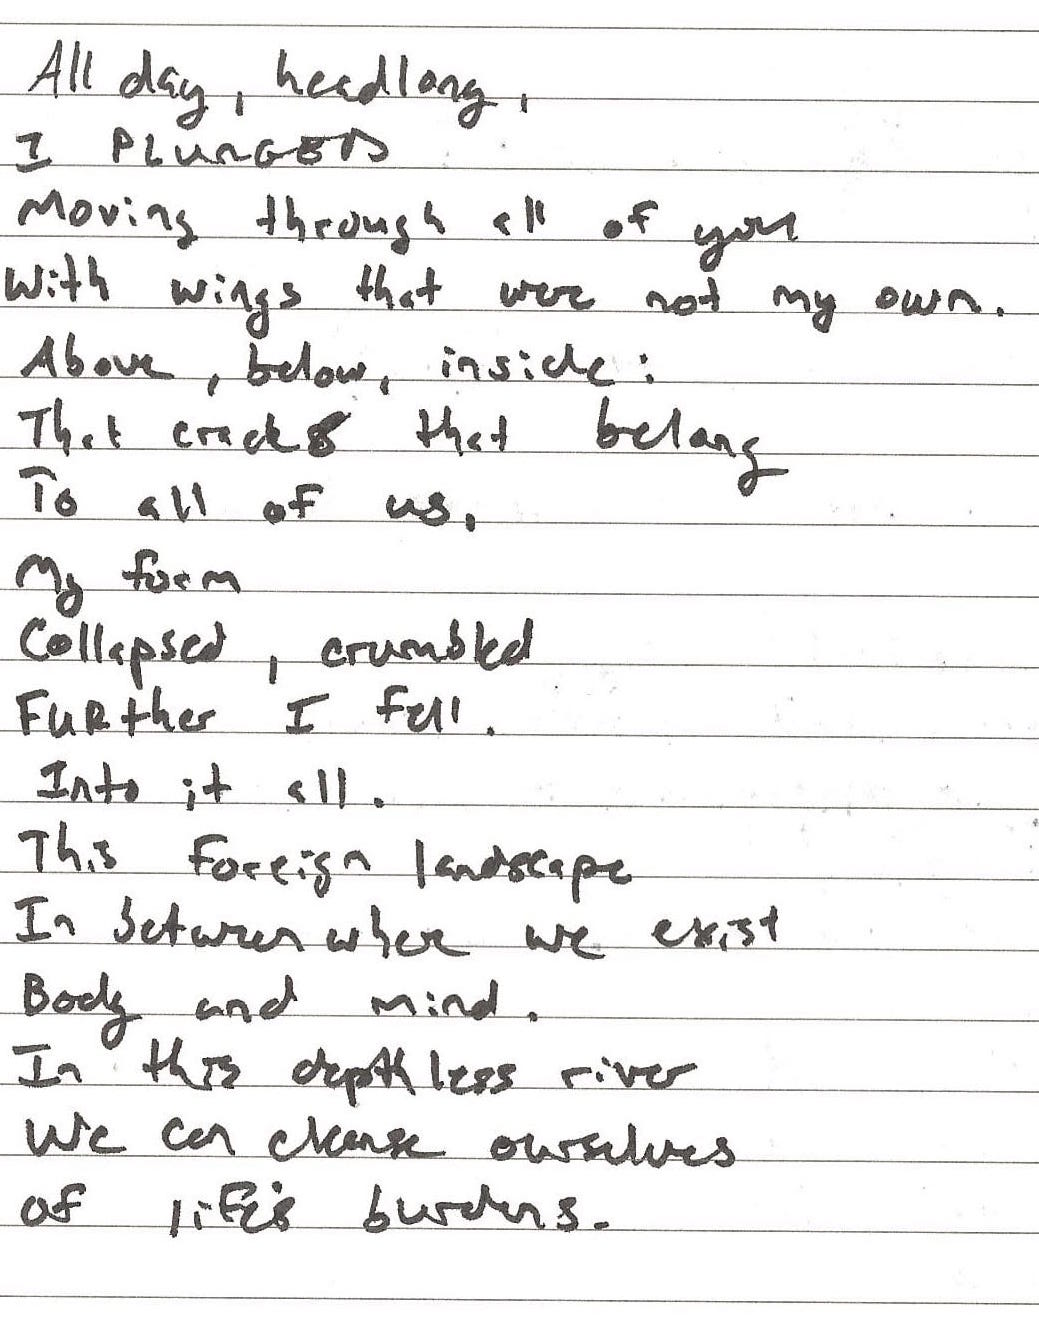 All day, headlong,
I PLUNGED
Moving through all of you
With wings that were not my own.
Above, below, inside:
That cracks that belong
To all of us.
My form
Collapsed, crumbled
Further I fell.
Into it all.
This Foreign landscape
In between where we exist
Body and mind.
In this depthless river
We can cleanse ourselves
of life's burdens.